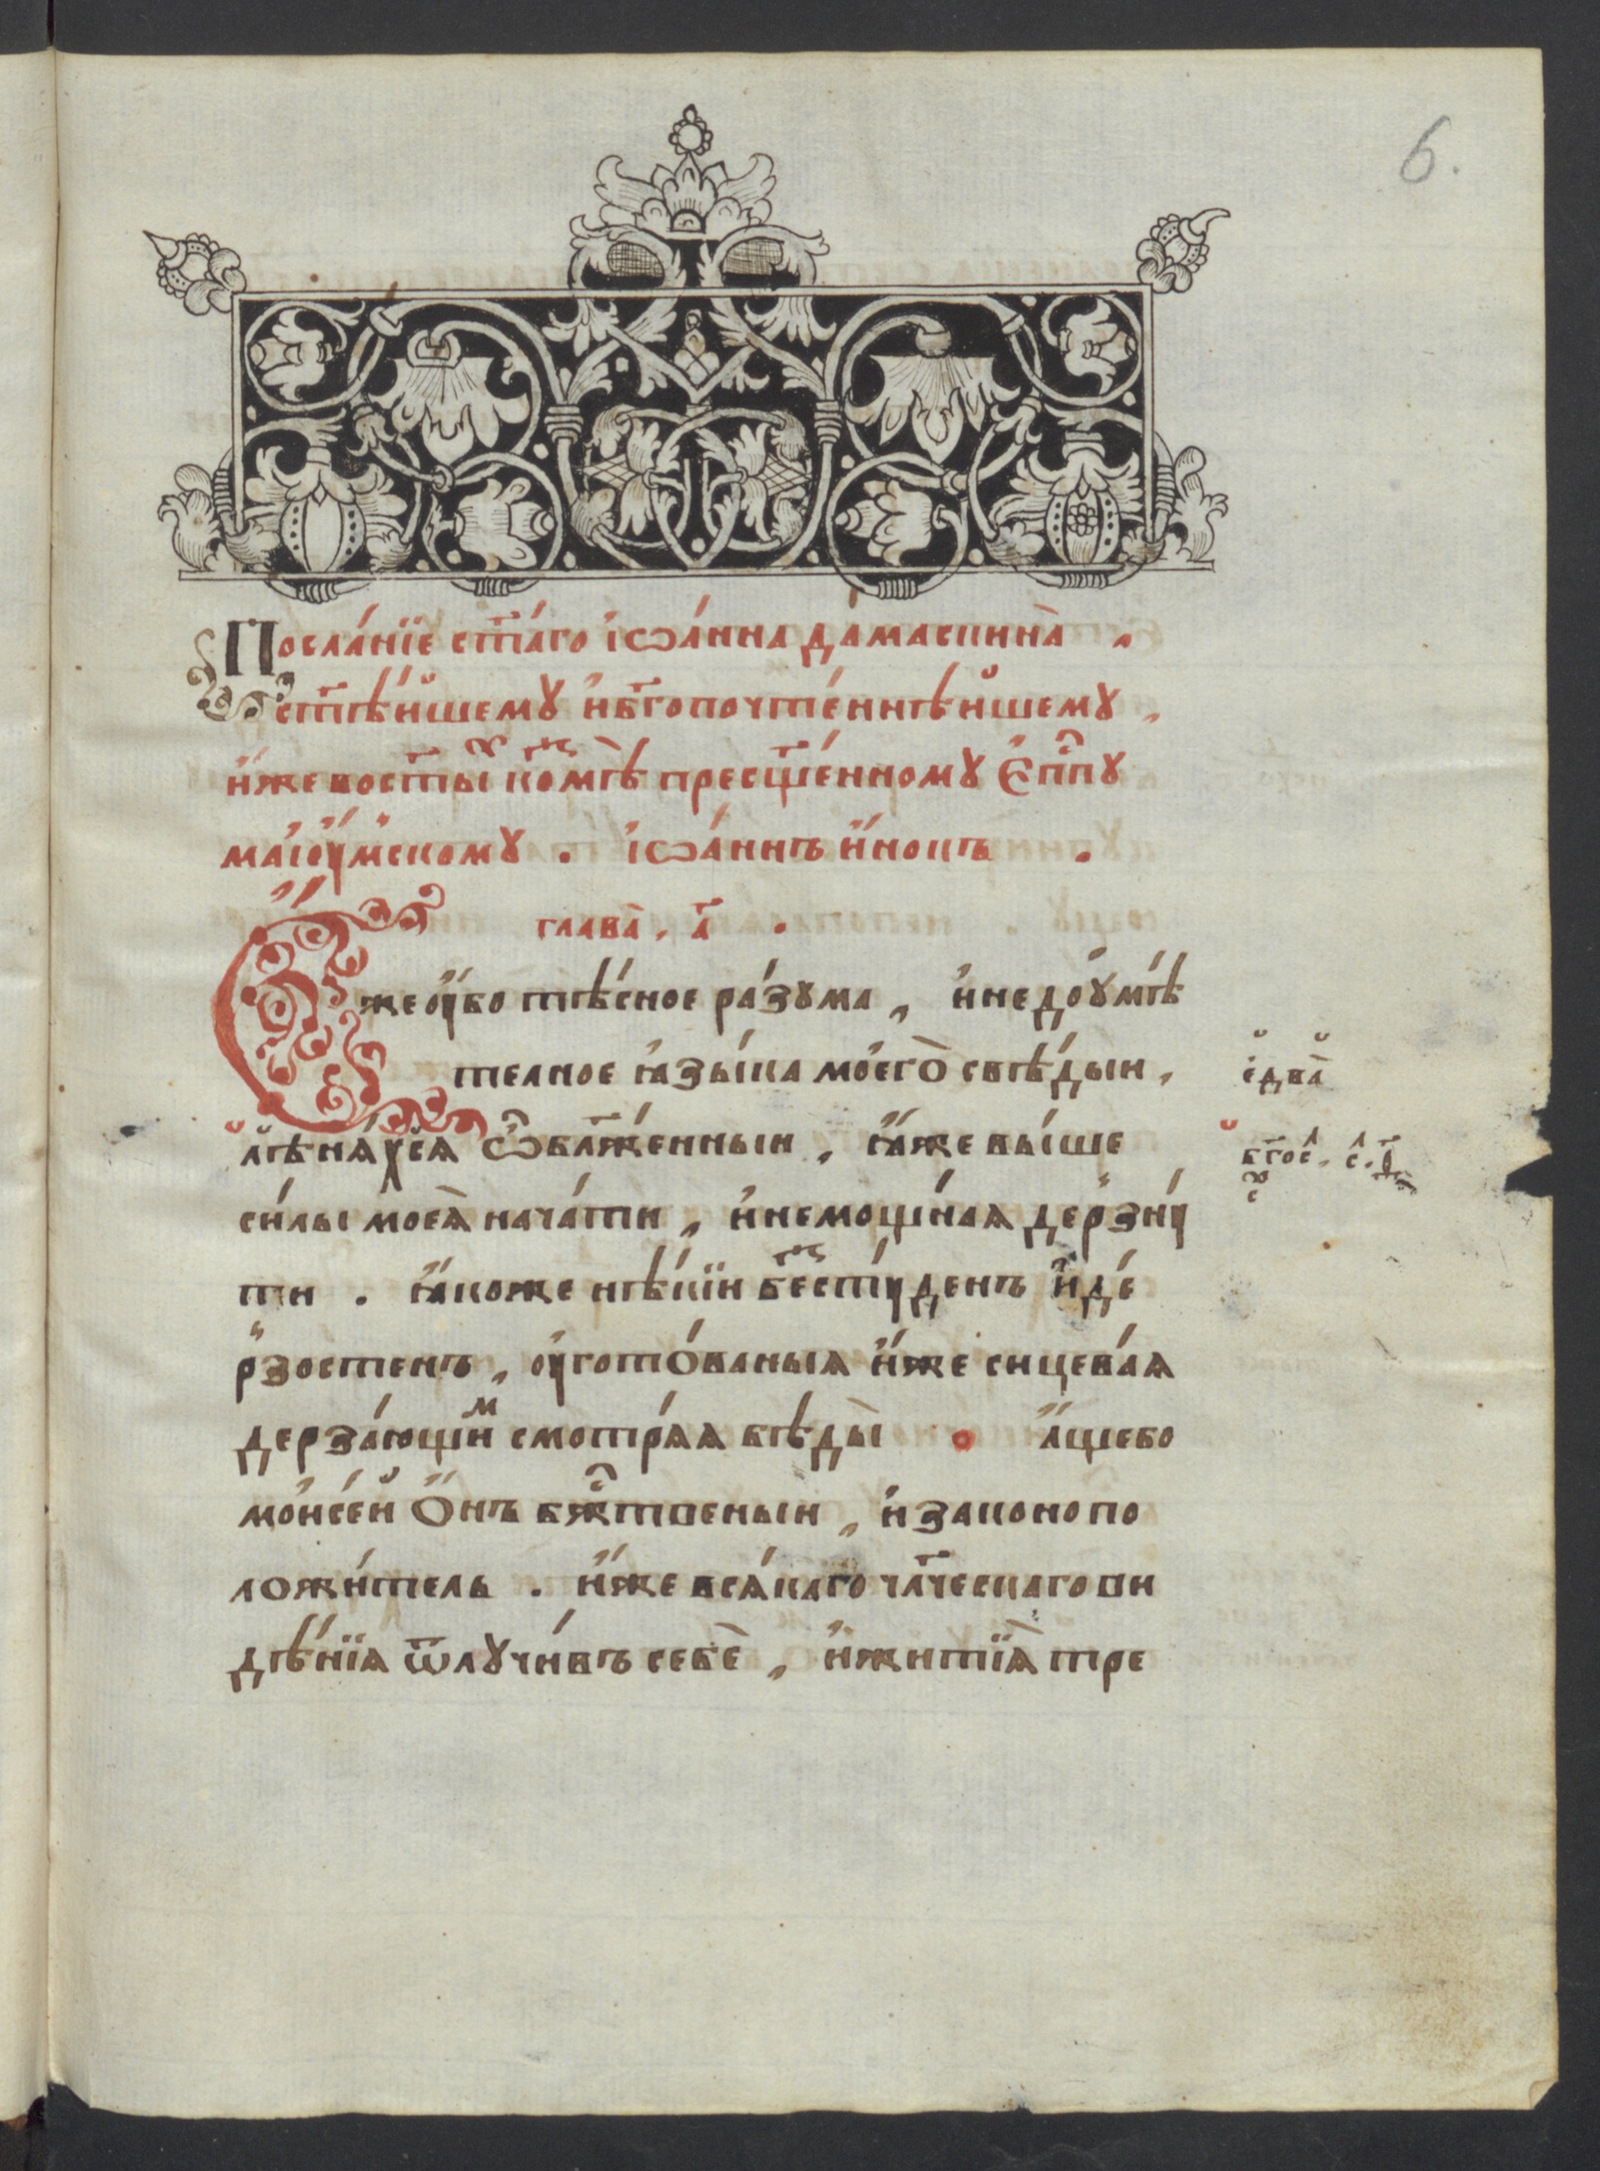 6.
Посла́нїе ст҃а́го і҆ѡа́нна дамаскина̀ .
ст҃ѣ́йшемꙋ и҆бг҃опочте́ннѣйшемꙋ ,
и҆́же вост҃ы́хъ комѣ̀ прес҃ще́нномꙋ є҆пⷭ҇пꙋ
маїоу́мскомꙋ . і҆ѡа́ннъ и҆́нокъ .
глава̀ . а҃ .
Е҆́же оу҆́бо тѣ́сное ра́зꙋма , и҆ недоꙋмѣ́
телное ꙗ҆зы́ка моегѡ̀ свѣ́дыи ,
лѣня́хсѧ ѽбл҃же́нныи , ꙗ҆́же вы́ше
си́лы моеѧ̀ нача́ти , и҆ немощна́ѧ дерзнꙋ́
ти . ꙗ҆́коже нѣ́кїи бесстꙋ́денъ и҆ де́
рзостенъ , оу҆гото́ваныѧ и҆́же сицева́ѧ
дерза́ющиⷨ смотрѧ́ѧ бѣды̀ . а҆́щебо
мои҆се́й ѻ҆́нъ бж҃твеныи , и҆ законопо
ложи́тель . и҆́же всѧ́каго чл҃ческаго ви
дѣ́нїѧ ѿлꙋчи́въ себѐ , и҆ житїѧ̀ тре
е҆два̀
бг҃ос .